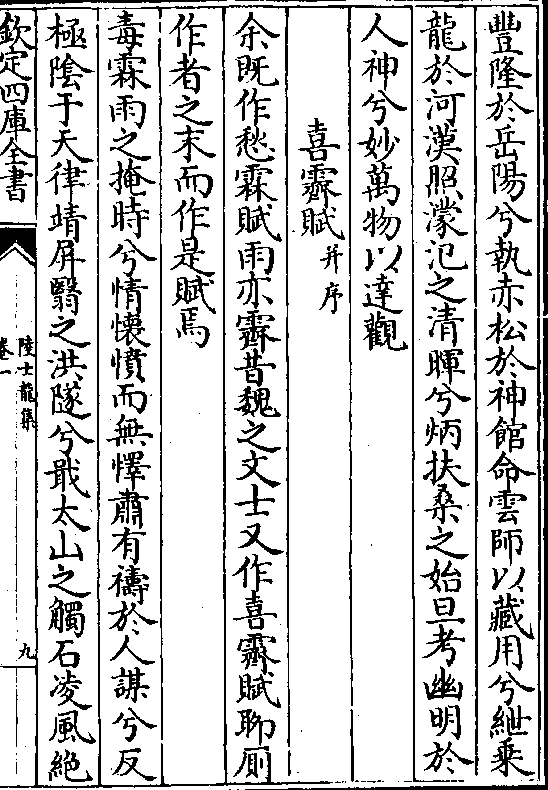 豐隆於岳陽兮執赤松於神館命雲師以藏用兮紲乗
龍於河漢照濛汜之清暉兮炳扶桑之始旦考幽明於
人神兮妙萬物以達觀
喜霽賦并序
余既作愁霖賦雨亦霽昔魏之文士又作喜霽賦聊厠
作者之末而作是賦焉
毒霖雨之掩時兮情懐憤而無懌肅有禱於人謀兮反
極陰于天律靖屏翳之洪隧兮戢太山之觸石凌風絶
欽定四庫全書
陸士龍集
卷一
九